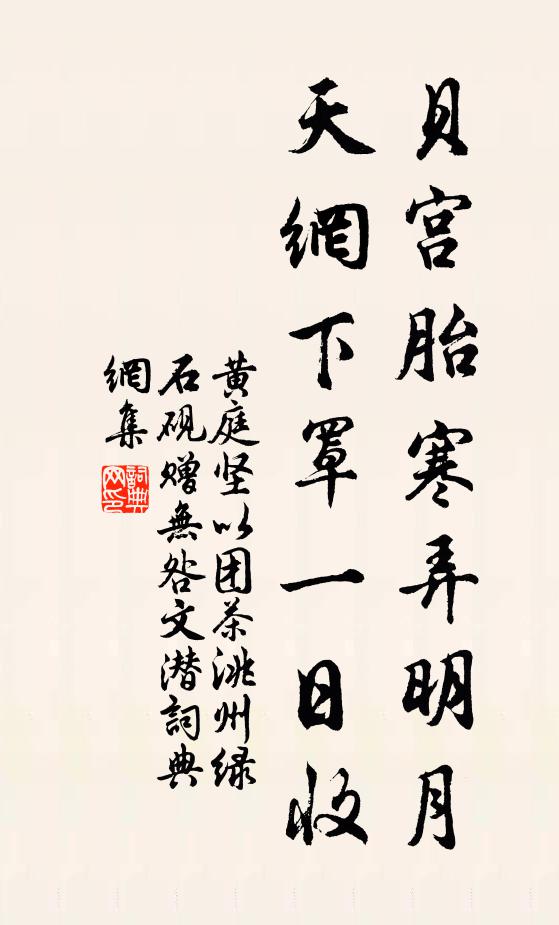 貝宫胎寒弄明月
天網下罩一日收
黄庭坚以团茶洮州绿
石砚赠無咎文潜詞典
網集
詞典
网印